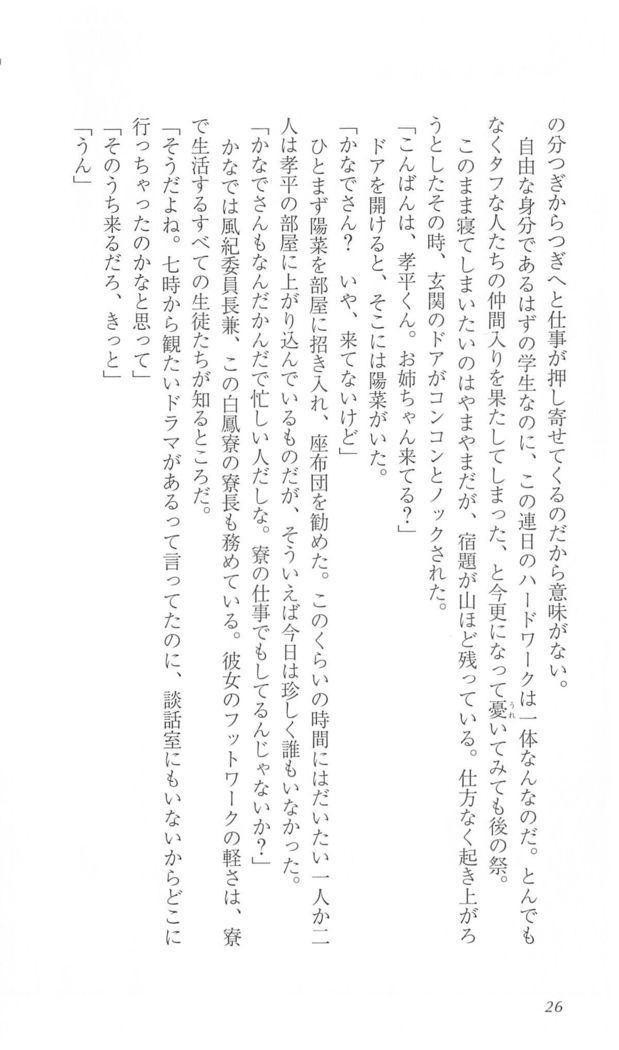 の分つぎからつぎへと仕事が押し寄せてくるのだから意味がない。
自由な身分であるはずの学生なのに、この連日のハードワークは一体なんなのだ。とんでも
なくタフな人たちの仲間入りを果たしてしまった、と今更になって憂いてみても後の祭。
このまま寝てしまいたいのはやまやまだが、宿題が山ほど残っている。仕方なく起き上がろ
うとしたその時、玄関のドアがコンコンとノックされた。
「こんばんは、孝平くん。お姉ちゃん来てる？」
ドアを開けると、そこには陽菜がいた。
「かなでさん？　いや、来てないけど」
ひとまず陽菜を部屋に招き入れ、座布団を勧めた。このくらいの時間にはだいたい一人か二
人は孝平の部屋に上がり込んでいるものだが、そういえば今日は珍しく誰もいなかった。
「かなでさんもなんだかんだで忙しい人だしな。寮の仕事でもしてるんじゃないか？」
かなでは風紀委員長兼、この白鳳寮の寮長も務めている。彼女のフットワークの軽さは、寮
で生活するすべての生徒たちが知るところだ。
「そうだよね。七時から観たいドラマがあるって言ってたのに、談話室にもいないからどこに
行っちゃったのかなと思って」
「そのうち来るだろ、きっと」
「うん」
うれ
26